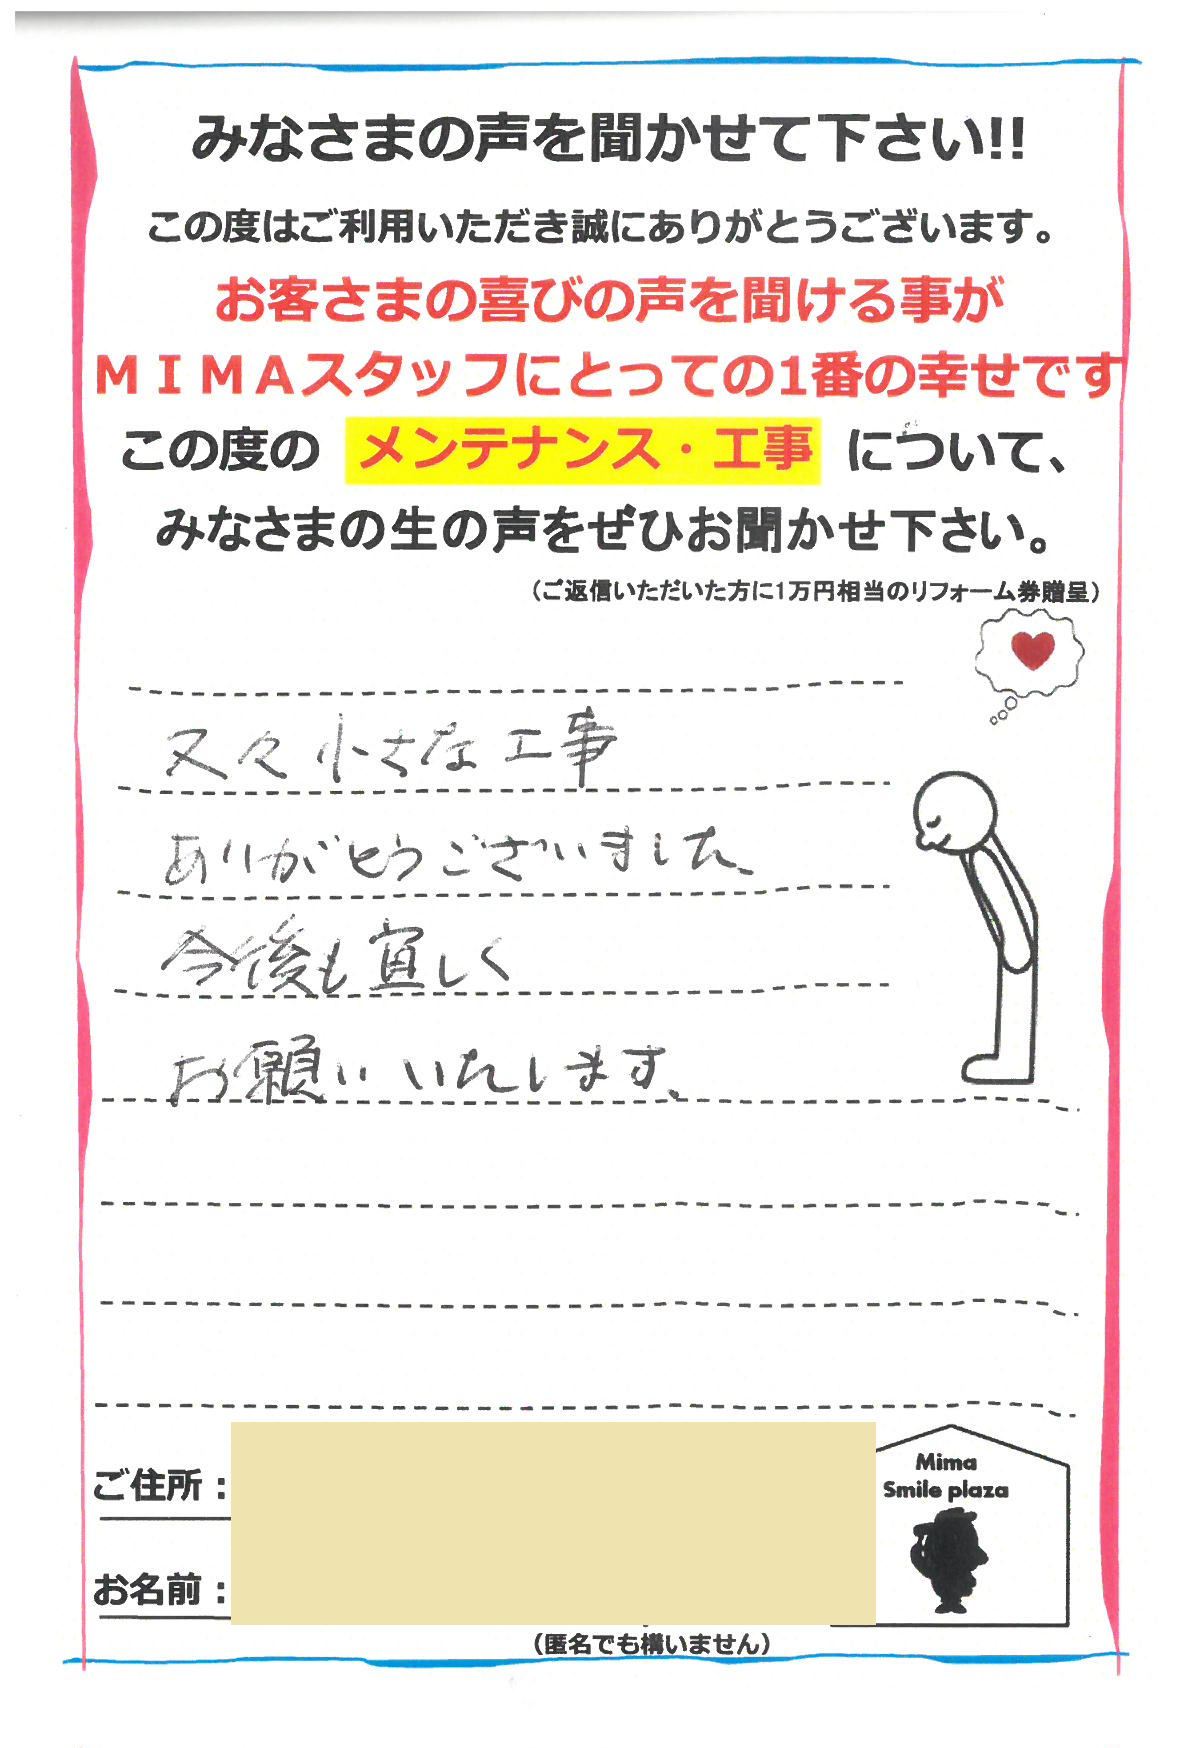 みなさまの声を聞かせて下さい!!
この度はご利用いただき誠にありがとうございます。
お客さまの喜びの声を聞ける事が
ＭＩＭＡスタッフにとっての1番の幸せです
この度の メンテナンス・工事 について、
みなさまの生の声をぜひお聞かせ下さい。
（ご返信いただいた方に1万円相当のリフォーム券贈呈）
又々小さな工事
ありがとうございました、
今後も宜しく
お願いいたします、
ご住所：
Mima
Smile plaza
お名前：
（匿名でも構いません）